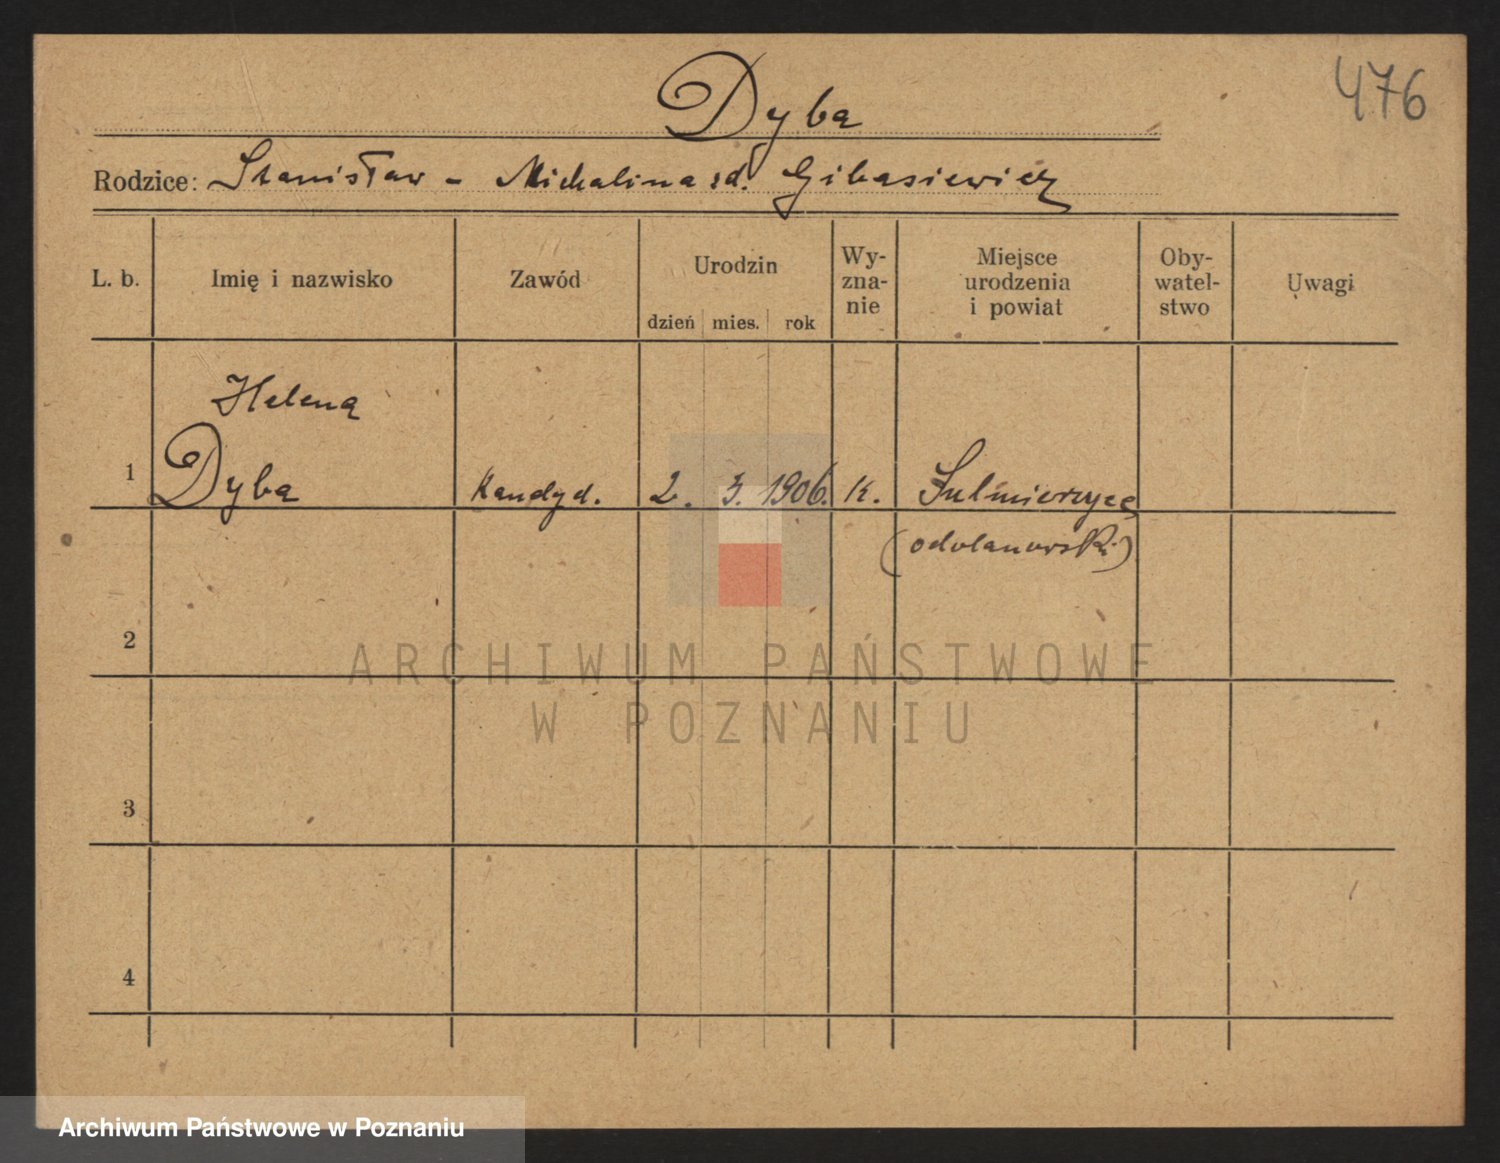 476
Dyba
Rodzice: Stanisław - Michalina zd. Gibasiewicz
L. b.
Imię i nazwisko
Zawód
Urodzin
dzień mies. rok
Wy-
zna-
nie
Miejsce
urodzenia
i powiat
Oby-
watel-
stwo
Uwagi
Helena
1 Dyba kandyd. 2. 3. 1906. K. Sulmierzyce
(odolanowski)
2
3
4
ARCHIWUM PAŃSTWOWE
W POZNANIU
Archiwum Państwowe w Poznaniu